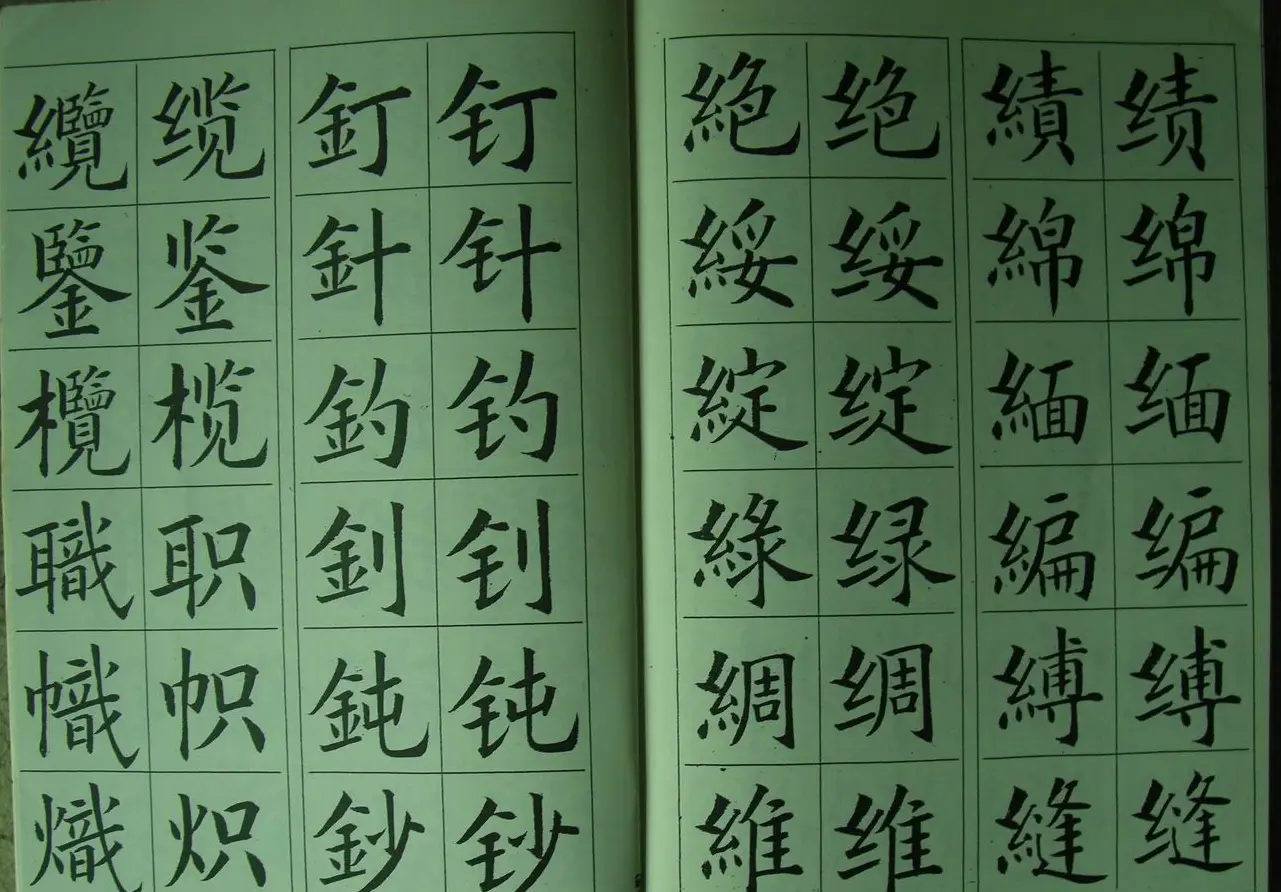 纜 缆 釘 钉 絶 绝 績 绩
鑒 鉴 針 针 綏 绥 綿 绵
欖 榄 釣 钓 綻 绽 緬 缅
職 职 釗 钊 綠 绿 編 编
幟 帜 鈍 钝 綢 绸 縛 缚
熾 炽 鈔 钞 維 维 縫 缝